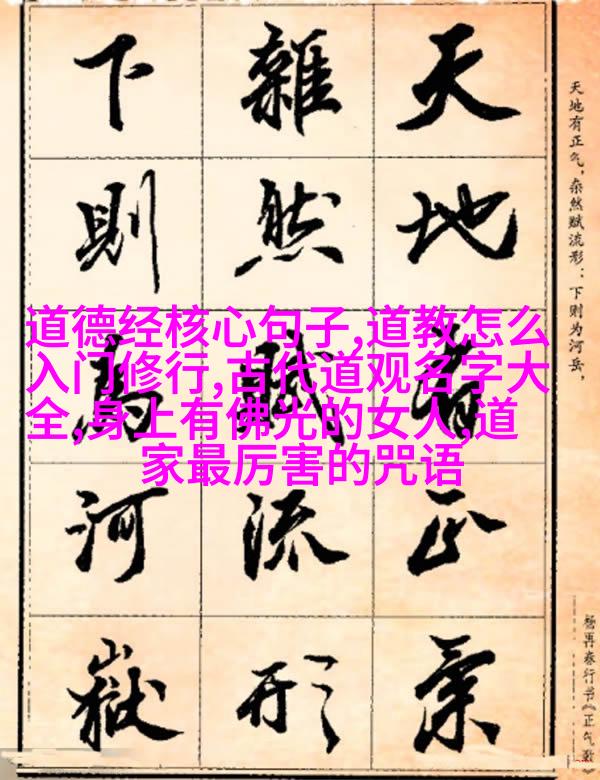 天地有正气,杂然赋流形:下则为河岳,
杨再春行书《正气歌》
天地有正氣
雜然賦流形
下則為河嶽
道德经核心句子,道教怎么
入门修行,古代道观名字大
全,身上有佛光的女人,道
家最厉害的咒语